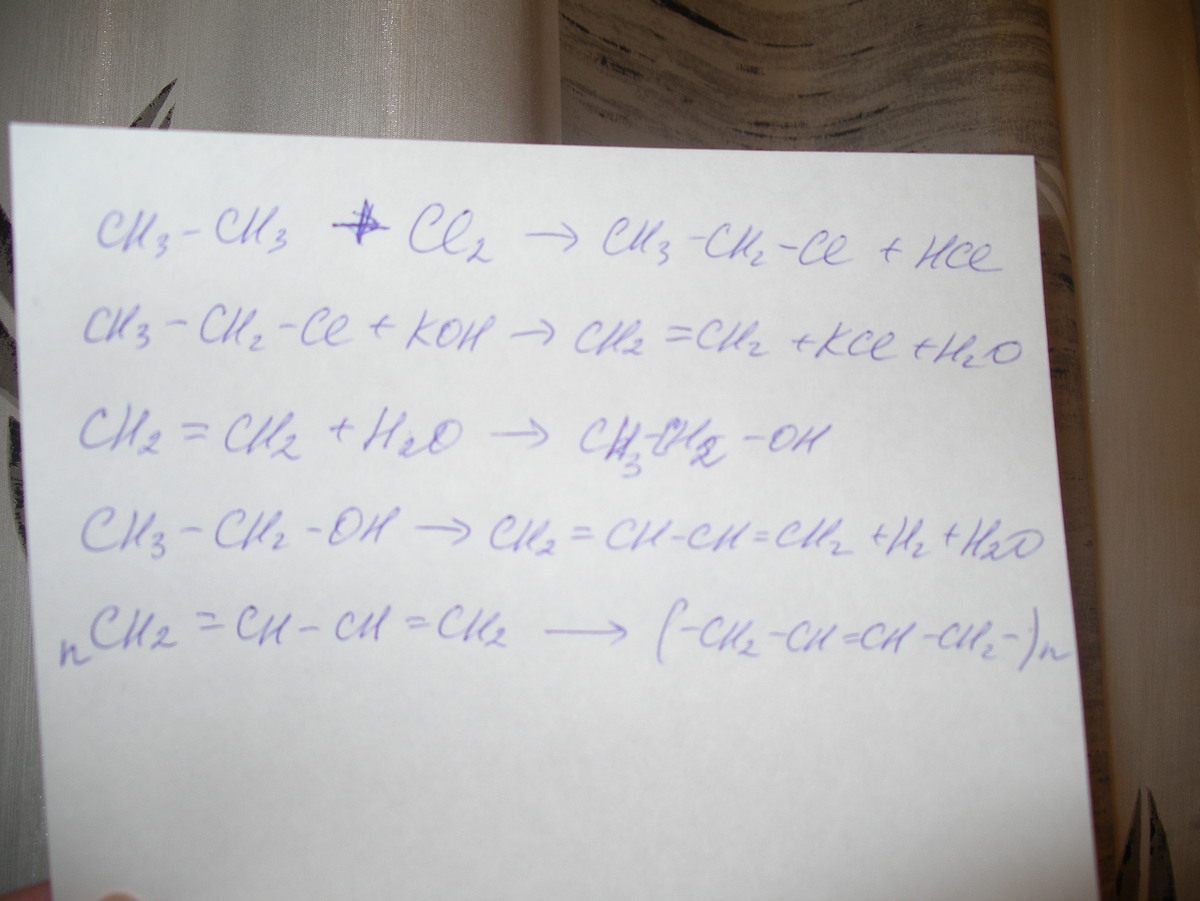 CH₃ - CH₃ + Cl₂ → CH₃ - CH₂ - Cl + HCl
CH₃ - CH₂ - Cl + KOH → CH₂ = CH₂ + KCl + H₂O
CH₂ = CH₂ + H₂O → CH₃-CH₂ - OH
CH₃ - CH₂ - OH → CH₂ = CH-CH=CH₂ + H₂ + H₂O
nCH₂ = CH - CH = CH₂ → (-CH₂-CH=CH-CH₂-)n